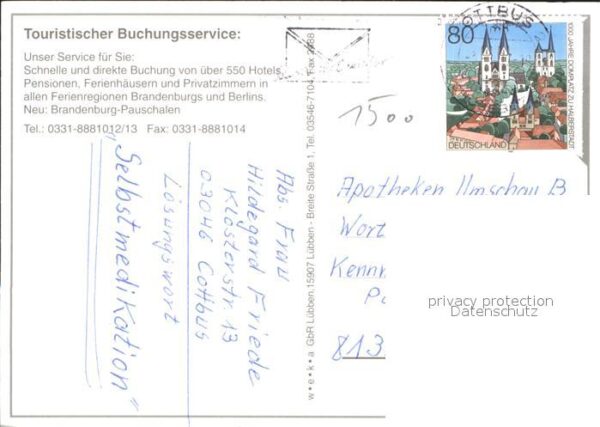 Touristischer Buchungsservice:
Unser Service für Sie:
Schnelle und direkte Buchung von über 550 Hotels,
Pensionen, Ferienhäusern und Privatzimmern in
allen Ferienregionen Brandenburgs und Berlins.
Neu: Brandenburg-Pauschalen
Tel.: 0331-8881012/13 Fax: 0331-8881014
Abs. Frau
Hildegard Friede
Klosterstr. 13
03046 Cottbus
Lösungswort
"Selbstmedikation"
w•e•k•a GbR Lübben.15907 Lübben - Breite Straße 1, Tel. 03546-7104, Fax
COTTBUS
80
1000 JAHRE DOMPLATZ ZU HALBERSTADT
DEUTSCHLAND
1500
Apotheken Umschau B
Wort
Kennw
Po
813
privacy protection
Datenschutz